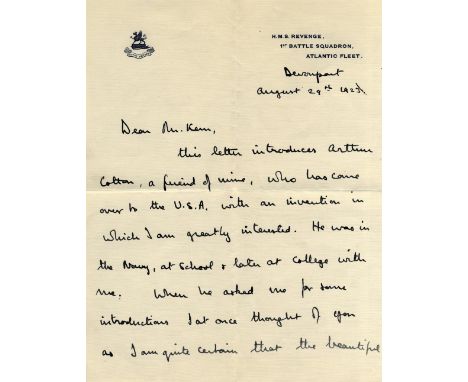 H.M.S. REVENGE,
1ST BATTLE SQUADRON,
ATLANTIC FLEET.
Devonport
August 29th 1923.
Dear Mr. Kern,
this letter introduces Arthur
Colton, a friend of mine, who has come
over to the U.S.A. with an invention in
which I am greatly interested. He was in
the Navy, at School & later at College with
me. When he asked me for some
introductions I at once thought of you
as I am quite certain that the beautiful